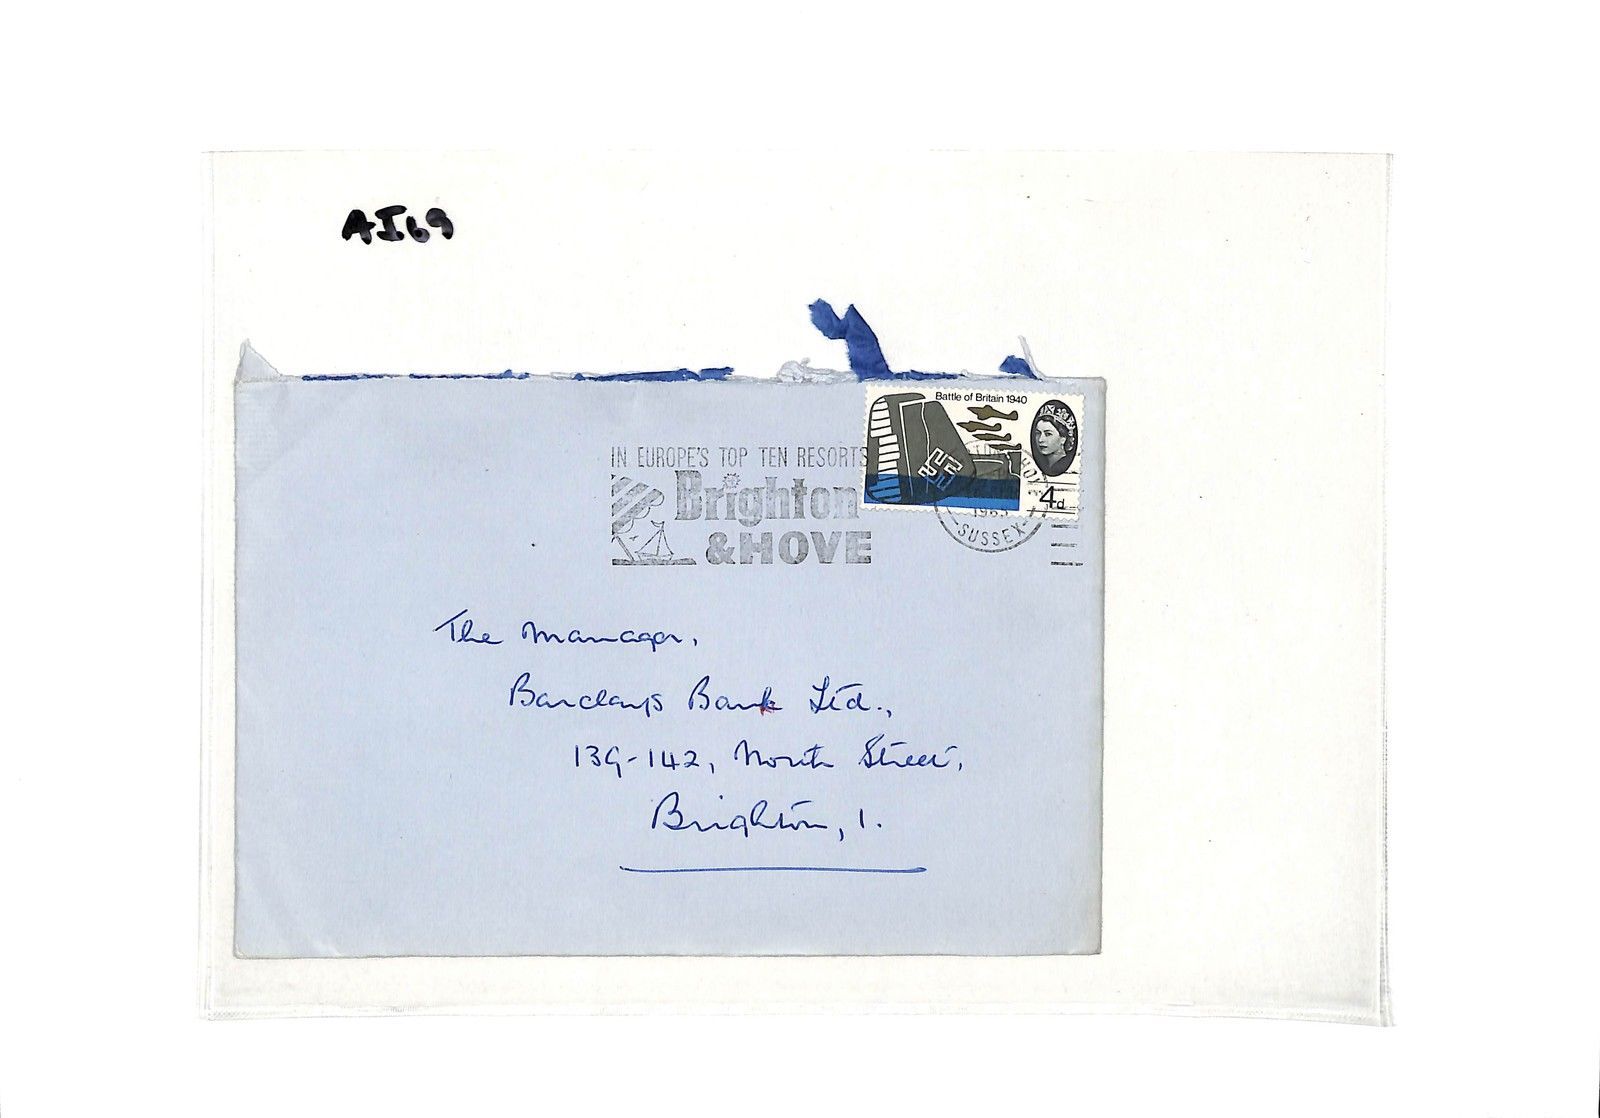 AI69
Battle of Britain 1940
IN EUROPE'S TOP TEN RESORTS
Brighton
& HOVE
4d
1965
SUSSEX
The Manager,
Barclays Bank Ltd.,
139-142, North Street,
Brighton, 1.